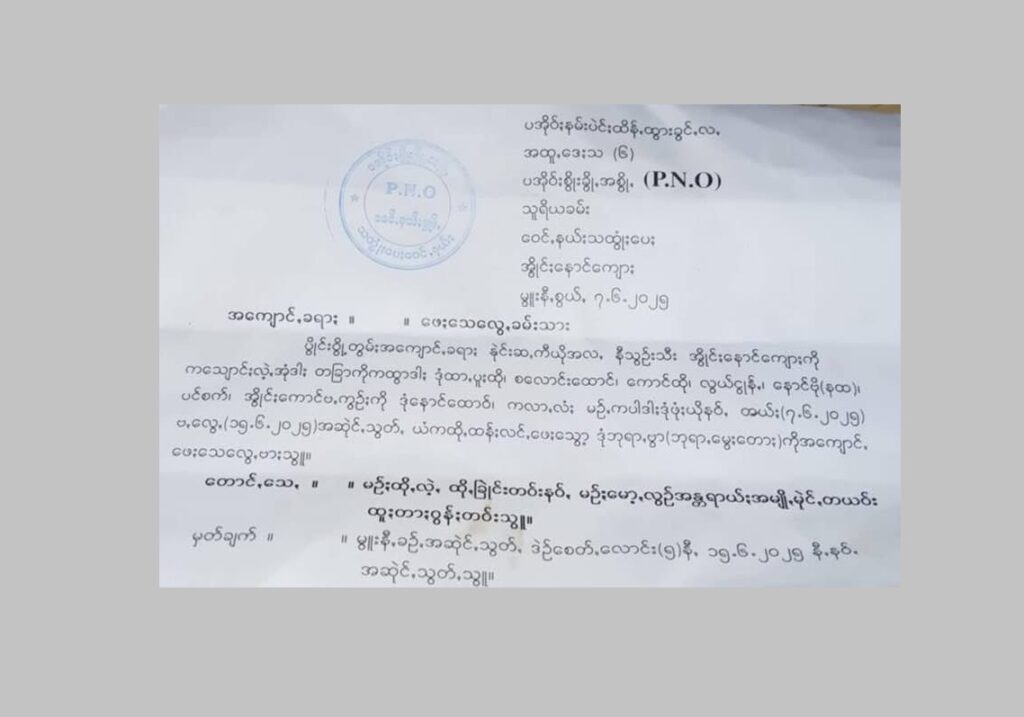 P.N.O
ပအိုဝ်ႏနမ်းပဲင်ႏထိန်ႇထွားခွင်ႇလႇ
အထူႇဒေႏသ (၆)
ပအိုဝ်ႏစွိုးခွိုႇအစွိုႇ (P.N.O)
သူရိယခမ်း
ဝေင်ႇနယ်းသထွုံႏပေႏ
အွိုင်ႏနောင်ကျောႏ
မွူးနီႇစွယ်ႇ ၇.၆.၂၀၂၅
အကျောင်ႇခရာႏ ။ ။ ဖေႏသေလွေႇခမ်းသား
ပွိုင်းဗွို့တွမ်ႏအကျောင်ႇခရာႏ နဲင်းဆႇကီယိုအလႇ နီသွဉ်ႏသီး အွိုင်ႏနောင်ကျောႏကို
ကသျောင်ႏလဲ့ႇအုံဒါႏ တခြာကိုကထွာဒါႏ ဒုံထာႇပူႏထိုႇ စလောင်းထောင်၊ ကောင်ထို၊ လွယ်ငွုန်ႇ၊ နောင်ဗို(နထ)၊
ပင်စက်၊ အွိုင်ႏကောင်ဗႇကွဉ်ႏကို ဒုံနောင်ထောဝ်၊ ကလာႇလံႏ မဉ်ႇကပါဒါႏဒုံဖုံႏယိုနဝ်ႇ အယ်ႏ(၇.၆.၂၀၂၅)
ဗႇလွေႇ(၁၅.၆.၂၀၂၅)အဆဲင်ႇသွတ်ႇ ယံကထိုႇထန်ႏလင်ႇဖေႏသွော့ ဒုံဘုရာႇမွာ(ဘုရာႇမွေးတောႏ)ကိုအကျောင်ႇ
ဖေႏသေလွေႇဗာႏသွူ။
တောင်ႇသေႇ ။ ။ မဉ်ႏထိုႇလဲ့ႇ ထိုႇခြဲင်ႏတဝ်းနဝ်ႇ မဉ်ႏမော့ႇလွဉ်အန္တရာယ်ႏအမျိုႇမဲင်ႇတယဝ်း
ထူႏတာႏဂွန်ႏတဝ်းသွူ။
မှတ်ချက် ။ ။ မွူးနီႇခဉ်ႇအဆဲင်ႇသွတ်ႇ ဒဲဉ်စေတ်ႇလောင်း(၅)နီႇ ၁၅.၆.၂၀၂၅ နီႇနဝ်ႇ
အဆဲင်ႇသွတ်ႇသွူ။